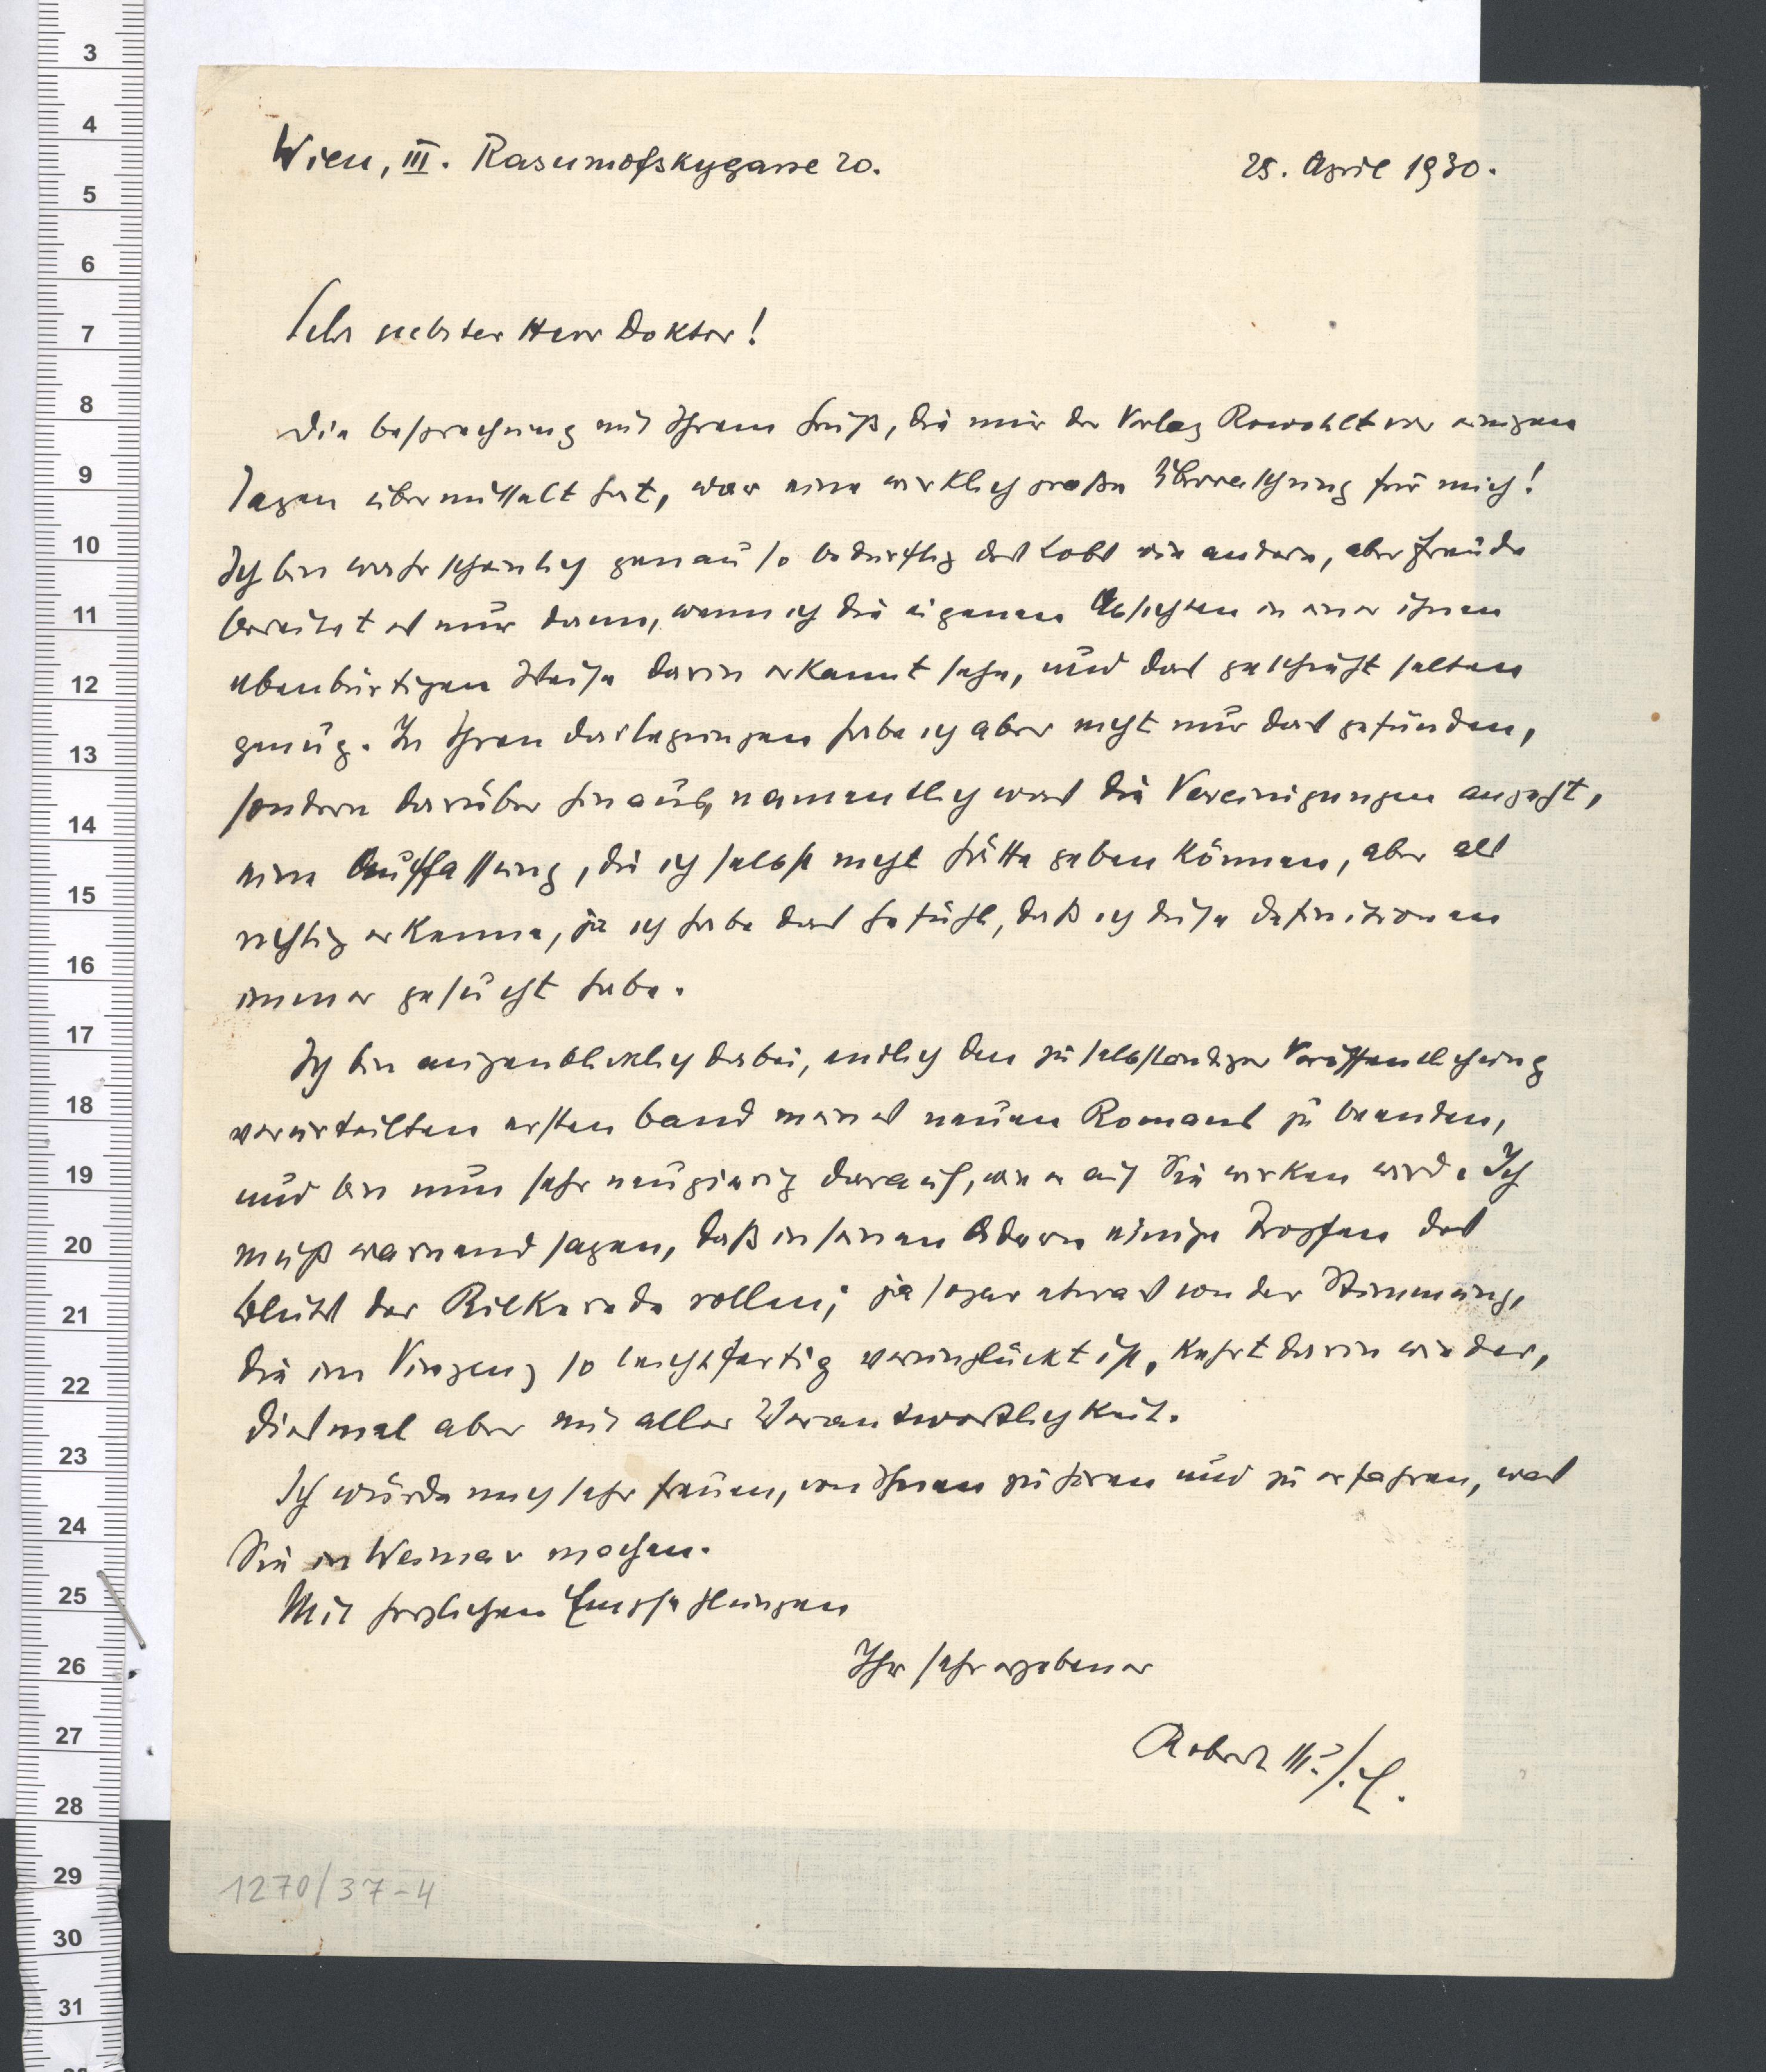 Wien, III. Rasumofskygasse 20.
25. April 1930.
Sehr geehrter Herr Doktor!
Die Besprechung mit Ihrem Gruß, die mir der Verlag Rowohlt vor einigen
Tagen übermittelt hat, war eine wirklich große Überraschung für mich!
Ich bin wahrscheinlich genau so bedürftig des Lobs wie andere, aber Freude
bereitet es nur dann, wenn ich die eigenen Absichten in einer ihnen
ebenbürtigen Weise darin erkannt sehe, und das geschieht selten
genug. In Ihren Darlegungen habe ich aber nicht nur das gefunden,
sondern darüber hinaus, namentlich was die Vereinigungen angeht,
eine Auffassung, die ich selbst nicht hätte geben können, aber als
richtig erkenne, ja ich habe das Gefühl, daß ich diese Definitionen
immer gesucht habe.
Ich bin augenblicklich dabei, endlich den zu selbständiger Veröffentlichung
verurteilten ersten Band meines neuen Romans zu beenden,
und bin nun sehr neugierig darauf, wie er auf Sie wirken wird. Ich
muß warnend sagen, daß in seinen Adern einige Tropfen des
Bluts der Rilkerede rollen; ja sogar etwas von der Stimmung,
die im Vinzenz so leichtfertig verunglückt ist, kehrt darin wieder,
diesmal aber mit aller Verantwortlichkeit.
Ich würde mich sehr freuen, von Ihnen zu hören und zu erfahren, was
Sie in Weimar machen.
Mit herzlichen Empfehlungen
Ihr sehr ergebener
Robert Musil.
1270/37-4
3
4
5
6
7
8
9
10
11
12
13
14
15
16
17
18
19
20
21
22
23
24
25
26
27
28
29
30
31